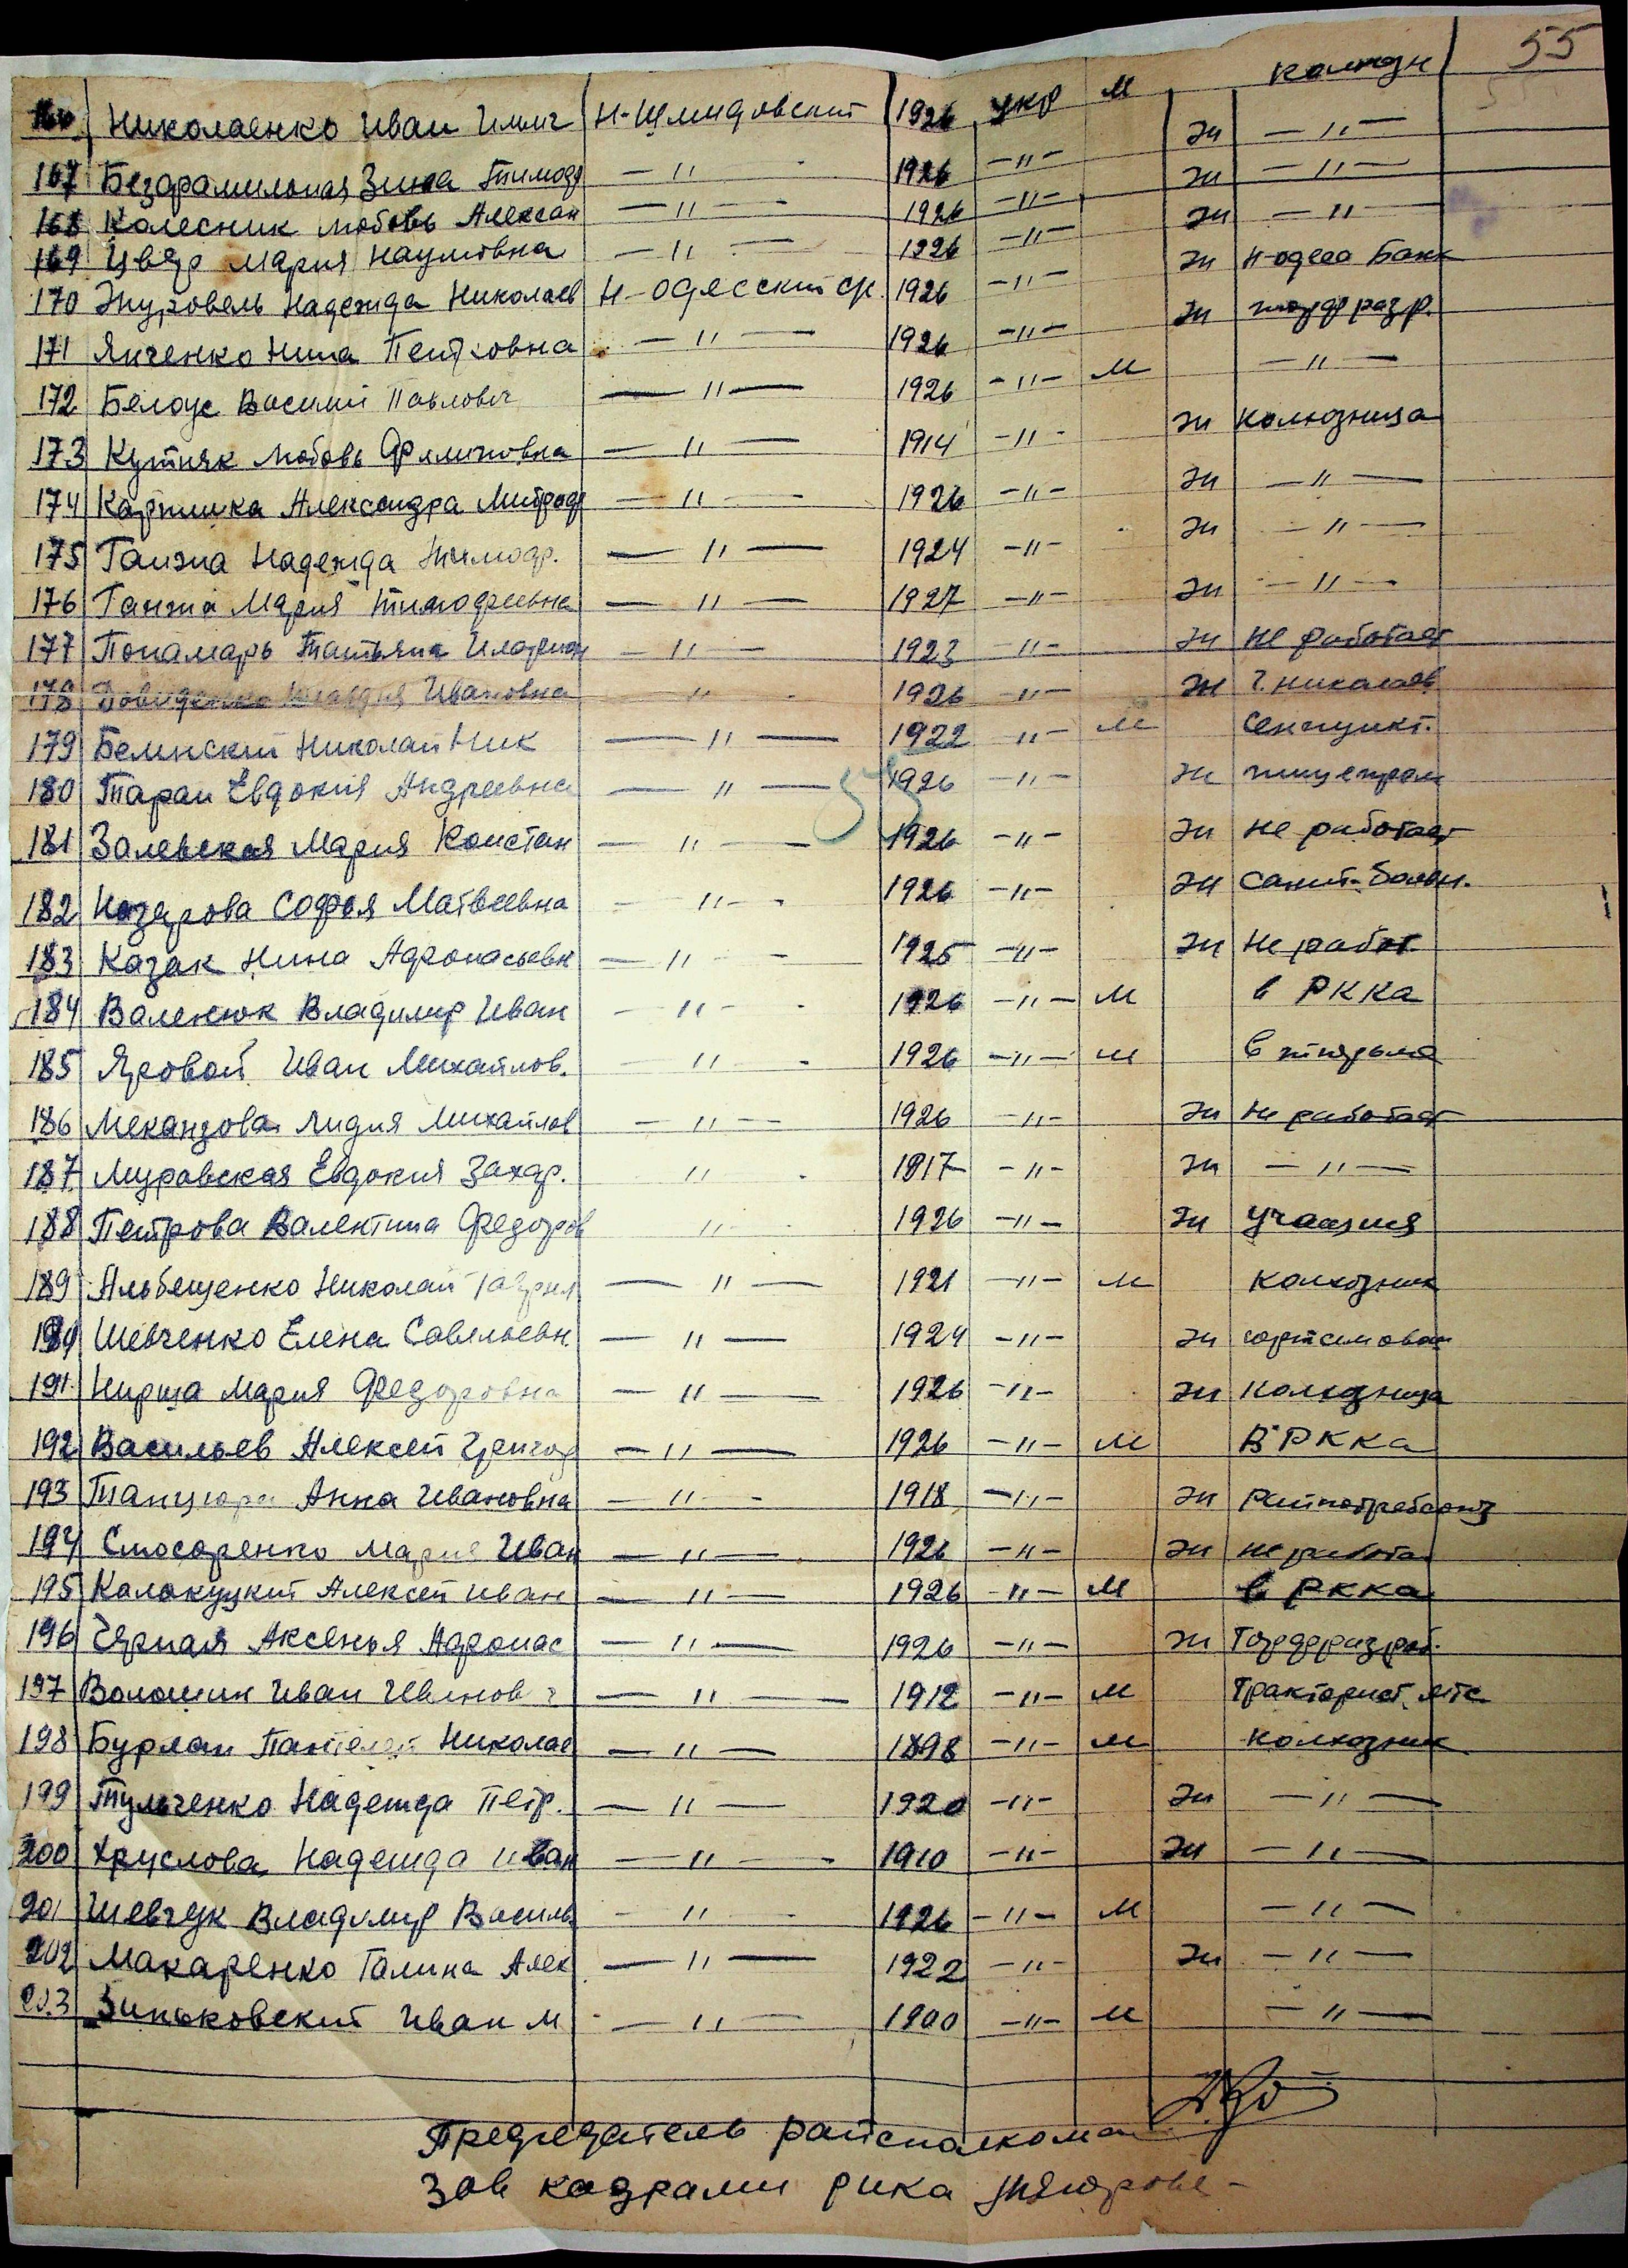 55
166 Николаенко Иван Ильич Н-Шмидовский 1926 укр М колхозн
167 Безфамильная Зина Тимоф — " — 1926 — " — Ж — " —
168 Колесник Любовь Алексан — " — 1926 — " — Ж — " —
169 Цвер Мария Наумовна — " — 1926 — " — Ж — " —
170 Журовель Надежда Николаев Н-Одесский с/с. 1926 — " — Ж Н-Одесса Банк
171 Янченко Нина Петровна — " — 1926 — " — Ж торфразр.
172 Белоус Василий Павлович — " — 1926 — " — М — " —
173 Кутняк Любовь 1914 — " — Ж колхозница
174 Картинка Александра Митроф — " — 1926 — " — Ж — " —
175 Ганжа Надежда Тимоф. — " — 1924 — " — Ж — " —
176 Ганжа Мария Тимофеевна — " — 1927 — " — Ж — " —
177 Понамарь Татьяна Иларион — " — 1923 — " — Ж не работает
178 Довиденко Клавдия Ивановна — " — 1926 — " — Ж г. Николаев
179 Белинский Николай Ник — " — 1922 — " — М
180 Таран Евдокия Андреевна — " — 1926 — " — Ж пищепром
55
181 Залевская Мария Констан — " — 1926 — " Ж не работает
182 Назарова Софья Матвеевна — " — 1926 — " — Ж Санит-больн.
183 Казак Нина Афонасьевн — " — 1925 — " — Ж Не работ.
184 Валенюк Владимир Иван — " — 1926 — " — М в РККА
185 Яровой Иван Михайлов. — " — 1926 — " — М в тюрьме
186 Меканцова Лидия Михайлов — " — 1926 — " — Ж Не работает
187 Муровская Евдокия Захар. " 1917 — " — Ж — " —
188 Петрова Валентина Федоров " 1926 — " — Ж учащаяся
189 Альбещенко Николай Гаврил — " — 1921 — " — М колхозник
190 Шевченко Елена Савельевн. — " — 1924 — " — Ж
191 Нирша Мария Федоровна — " — 1926 — " — Ж колхозница
192 Васильев Алексей Григор — " — 1926 — " — М В РККА
193 Танцюра Анна Ивановна — " — 1918 — " — Ж Райпотребсоюз
194 Слюсаренко Мария Иван — " — 1926 — " — Ж не работа
195 Калакуцкий Алексей Иван — " — 1926 — " — М в РККА
196 Черная Аксенья Афонас — " — 1926 — " — Ж Торфразраб.
197 Волошин Иван Иванович — " — 1912 — " — М Тракторист МТС
198 Бурлан Пантелей Николае — " — 1898 — " — М колхозник
199 Тульченко Надежда Петр. — " — 1920 — " — Ж — " —
200 Хруслова Надежда Иван — " — 1910 — " — Ж — " —
201 Шевчук Владимир Василь — " — 1926 — " — М — " —
202 Макаренко Галина Алек — " — 1922 — " — Ж — " —
203 Зиньковский Иван М — " — 1900 — " — М — " —
Председатель райсполкома
Зав кадрами рика